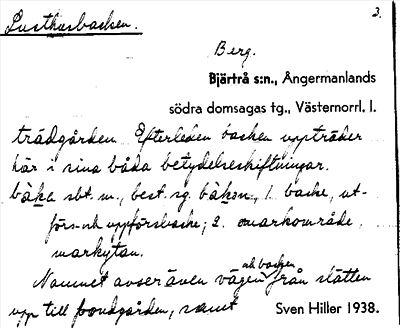 Lusthusbacken.
3.
Berg.
Bjärtrå s:n., Ångermanlands
södra domsagas tg., Västernorrl. l.
trädgården. Efterleden backen uppträder
här i sina båda betydelseskiftningar.
bàka sbt. m., best. sg. bàkɘn, 1. backe, ut-
förs- och uppförsbacke; 2. markområde,
markytan.
Namnet avser även vägen och backen från slätten
upp till bondgården, samt
Sven Hiller 1938.